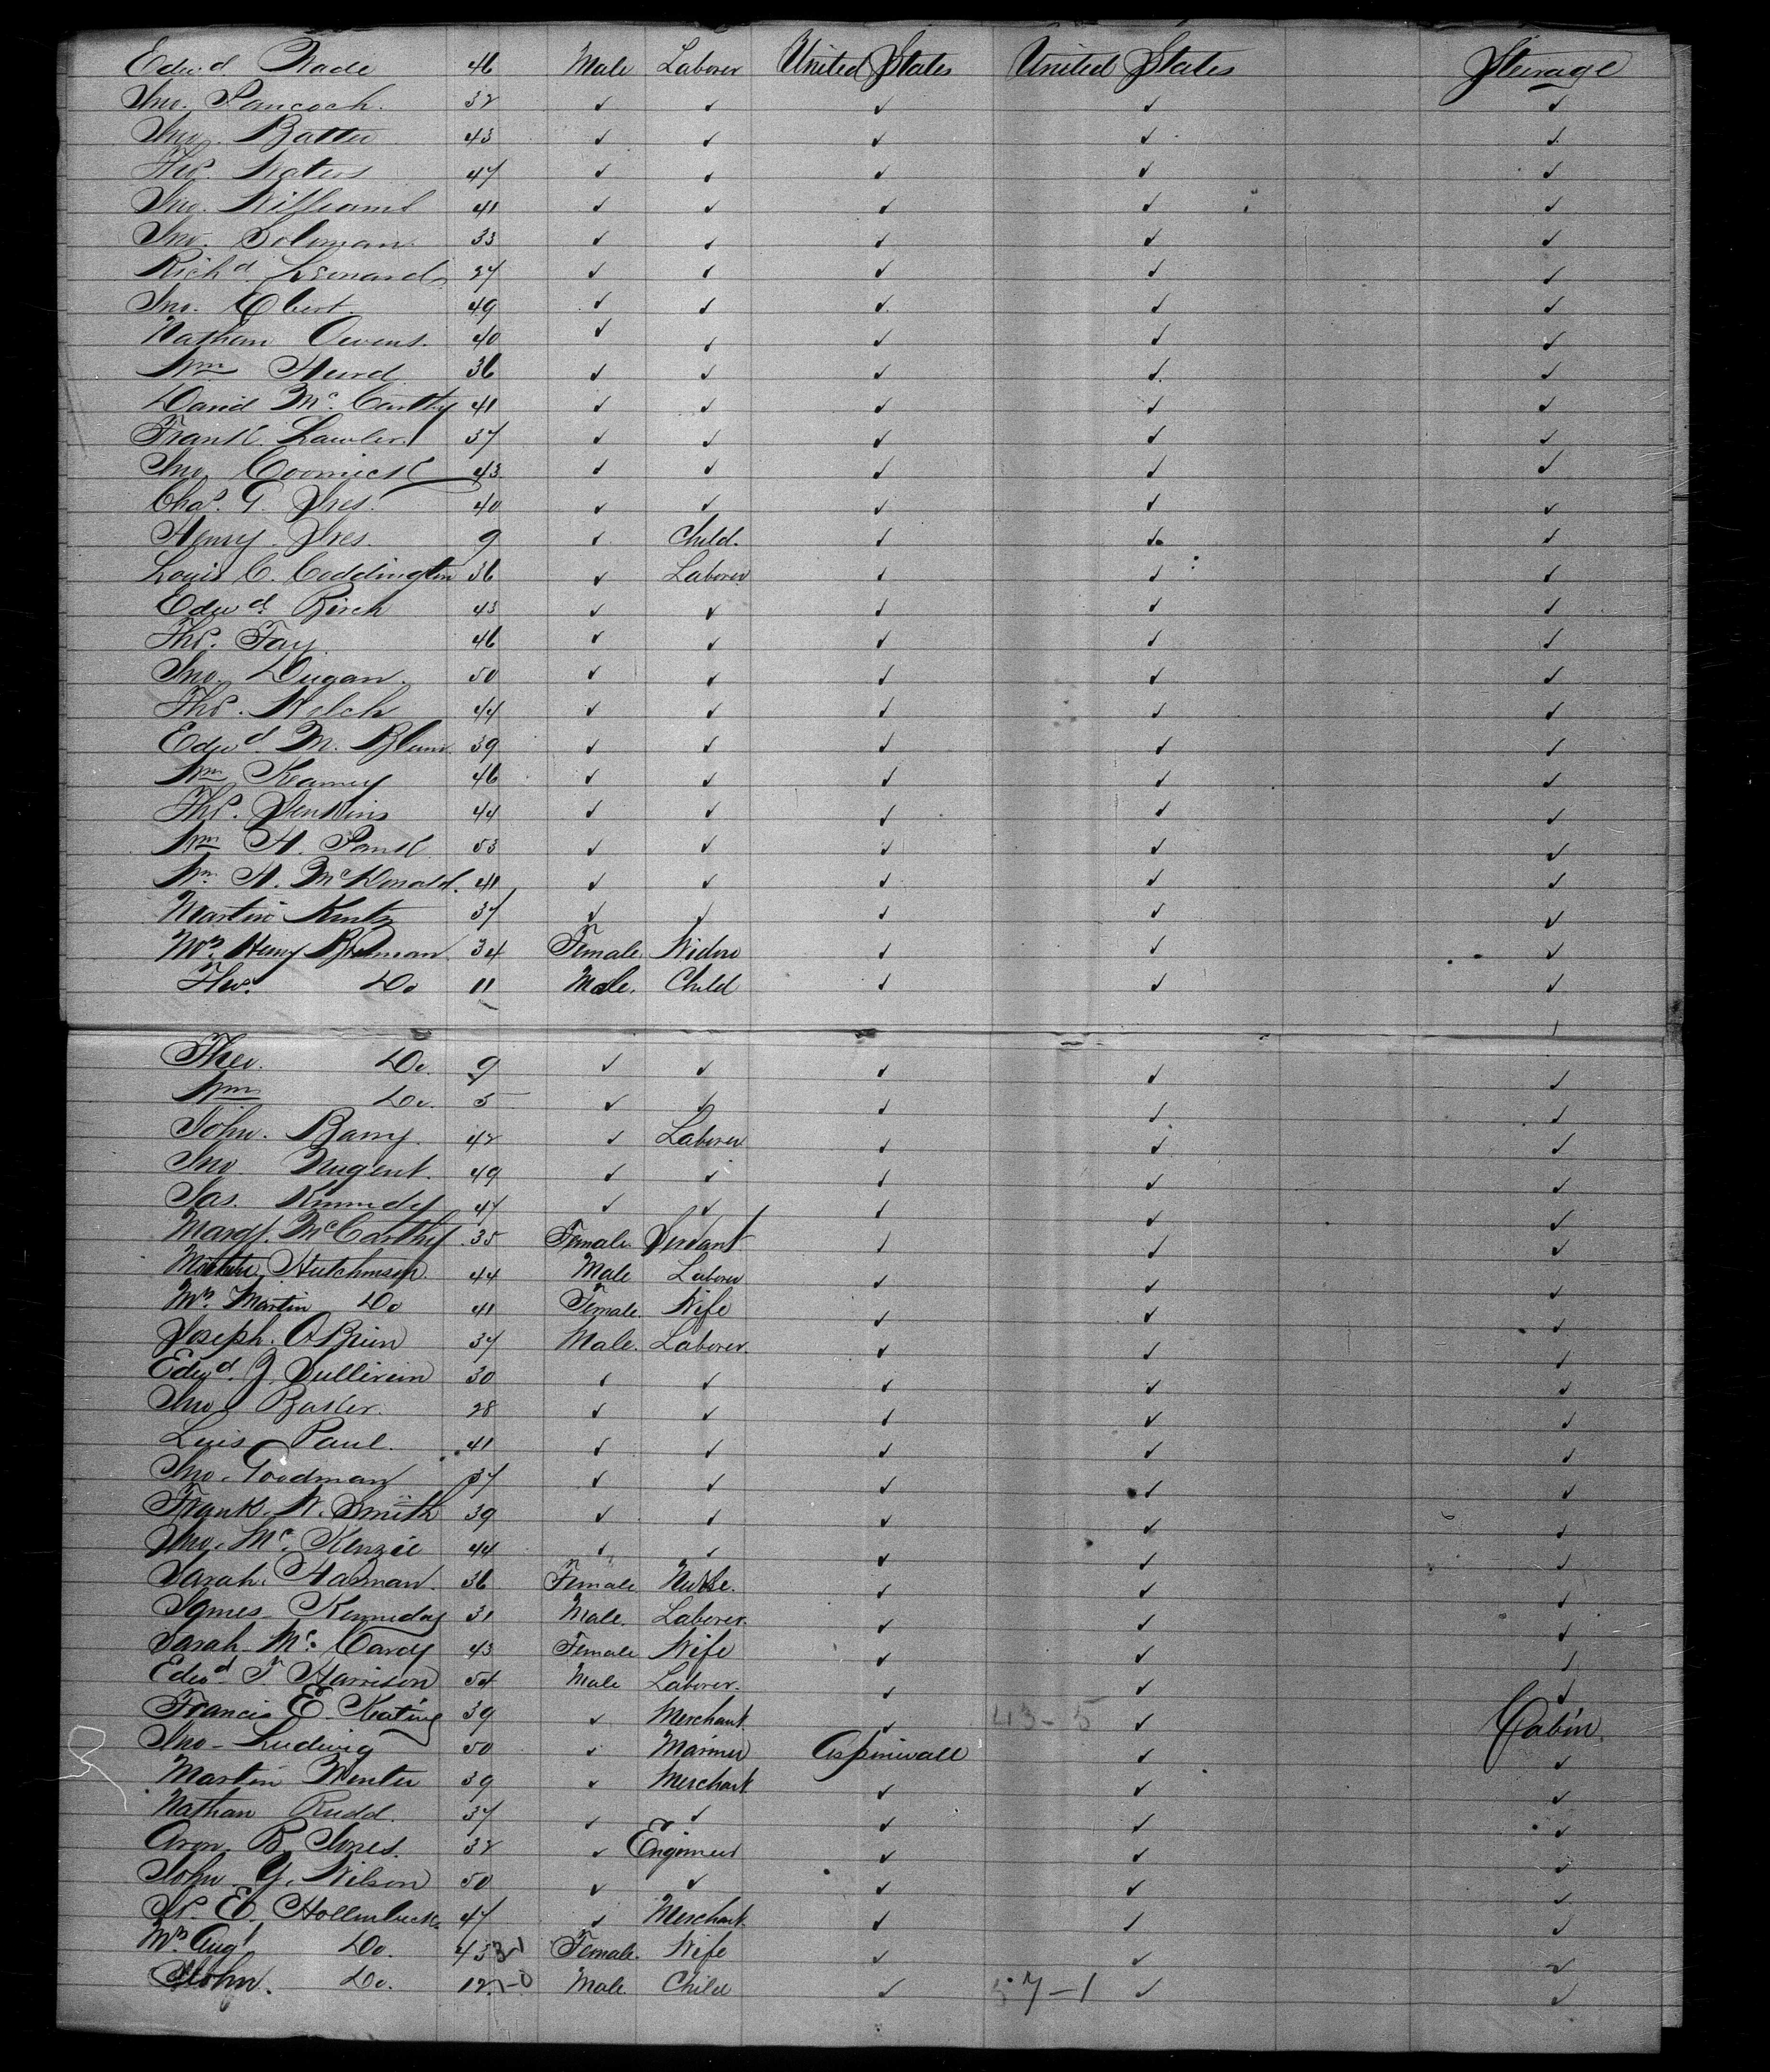 Edwd Wade 46 Male Laborer United States United States Steerage
Jno. Pancoch. 32 ✓ ✓ ✓ ✓ ✓
Jno. Batter 43 ✓ ✓ ✓ ✓ ✓
Thos. Waters 47 ✓ ✓ ✓ ✓ ✓
Jno. Williams 41 ✓ ✓ ✓ ✓ ✓
Jno. Soloman. 33 ✓ ✓ ✓ ✓ ✓
Richd Leonard 27 ✓ ✓ ✓ ✓ ✓
Jno. Ebert. 49 ✓ ✓ ✓ ✓ ✓
Nathan Owens. 40 ✓ ✓ ✓ ✓ ✓
Wm Hurd 36 ✓ ✓ ✓ ✓ ✓
David Mc. Carthy 41 ✓ ✓ ✓ ✓ ✓
Frank Lawler. 37 ✓ ✓ ✓ ✓ ✓
Jno. 43 ✓ ✓ ✓ ✓ ✓
Chas. G. Ives. 40 ✓ ✓ ✓ ✓ ✓
Henry Ives. 9 ✓ Child. ✓ ✓ ✓
Louis C. Coddington 36 ✓ Laborer ✓ ✓ ✓
Edwd. Birch 43 ✓ ✓ ✓ ✓ ✓
Thos. Fay. 46 ✓ ✓ ✓ ✓ ✓
Jno. Dugan. 50 ✓ ✓ ✓ ✓ ✓
Thos. Welch 44 ✓ ✓ ✓ ✓ ✓
Edwd. M. 39 ✓ ✓ ✓ ✓ ✓
Wm Kearney 46 ✓ ✓ ✓ ✓ ✓
Thos. Jenkins 44 ✓ ✓ ✓ ✓ ✓
Wm H. 53 ✓ ✓ ✓ ✓ ✓
Wm. H. McDonald. 41 ✓ ✓ ✓ ✓ ✓
Martin Kurtz 37 ✓ ✓ ✓ ✓ ✓
Mrs. Henry 34 Female. Widow ✓ ✓ ✓
Do 11 Male. Child ✓ ✓ ✓
Theo. Do. 9 ✓ ✓ ✓ ✓ ✓
Wm Do. 5 ✓ ✓ ✓ ✓ ✓
John. Barry. 42 ✓ Laborer ✓ ✓ ✓
Jno. Nugent. 49 ✓ ✓ ✓ ✓ ✓
Jas. Kennedy 47 ✓ ✓ ✓ ✓ ✓
Margt. McCarthy 35 Female. Servant ✓ ✓ ✓
Martin Hutchinson. 44 Male Laborer ✓ ✓ ✓
Mrs. Martin Do 41 Female. Wife ✓ ✓ ✓
Joseph. O'Brien 37 Male. Laborer. ✓ ✓ ✓
Edwd. J. Sullivan 30 ✓ ✓ ✓ ✓ ✓
Jno. 28 ✓ ✓ ✓ ✓ ✓
Luis Paul. 41 ✓ ✓ ✓ ✓ ✓
Jno. Goodman 37 ✓ ✓ ✓ ✓ ✓
Frank. W. Smith 39 ✓ ✓ ✓ ✓ ✓
Jno. Mc. Kenzie 44 ✓ ✓ ✓ ✓ ✓
Sarah. Harman. 36 Female Nurse. ✓ ✓ ✓
James Kenneday 31 Male. Laborer. ✓ ✓ ✓
Sarah Mc. Cardy 43 Female Wife ✓ ✓ ✓
Edwd. T. Harrison 54 Male Laborer. ✓ ✓ ✓
Francis E. Keating 39 ✓ Merchant. ✓ 43-5 ✓ Cabin.
Jno- Ludwig 50 ✓ Mariner Aspinwall ✓ ✓
Martin Winter 39 ✓ Merchant. ✓ ✓ ✓
Nathan Rudd. 37 ✓ ✓ ✓ ✓ ✓
Aron. B. Jones. 32 ✓ Engineer ✓ ✓ ✓
John. Y. Wilson 50 ✓ ✓ ✓ ✓ ✓
E. Hollenbeck. 47 ✓ Merchant. ✓ ✓ ✓
Mrs. Augt Do. 43 3-1 Female. Wife ✓ ✓ ✓
John. Do. 12 1-0 Male. Child ✓ 37-1 ✓ ✓